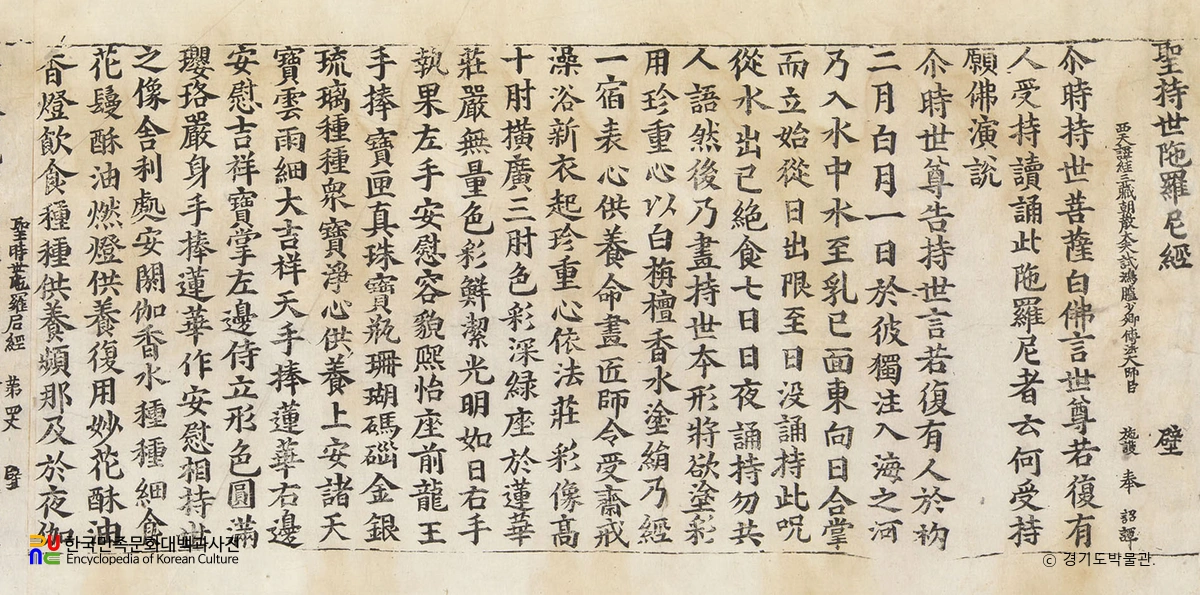 聖持世陁羅尼經 壁
西天譯經三藏朝散大夫試鴻臚少卿傳法大師臣 施護 奉 詔譯
尒時持世菩薩白佛言世尊若復有
人受持讀誦此陁羅尼者云何受持
願佛演說
尒時世尊告持世言若復有人於初
二月白月一日於彼獨注入海之河
乃入水中水至乳已面東向日合掌
而立始從日出限至日没誦持此呪
從水出已絶食七日日夜誦持勿共
人語然後乃畫持世本形將欲塗彩
用珍重心以白栴檀香水塗絹乃經
一宿表心供養命畫匠師令受齋戒
澡浴新衣起珍重心依法莊彩像高
十肘横廣三肘色彩深緑座於蓮華
莊嚴無量色彩鮮潔光明如日右手
執果左手安慰容貌熙怡座前龍王
手捧寶匣真珠寶瓶珊瑚碼碯金銀
琉璃種種衆寶淨心供養上安諸天
寶雲雨細大吉祥天手捧蓮華右邊
安慰吉祥寶掌左邊侍立形色圓滿
瓔珞嚴身手捧蓮華作安慰相持世
之像舍利處安閼伽香水種種細食
花鬘酥油燃燈供養復用妙花酥油
香燈飲食種種供養頻那及於夜
聖持世陁羅尼經 第 壁
한국민족문화대백과사전
Encyclopedia of Korean Culture
© 경기도박물관.